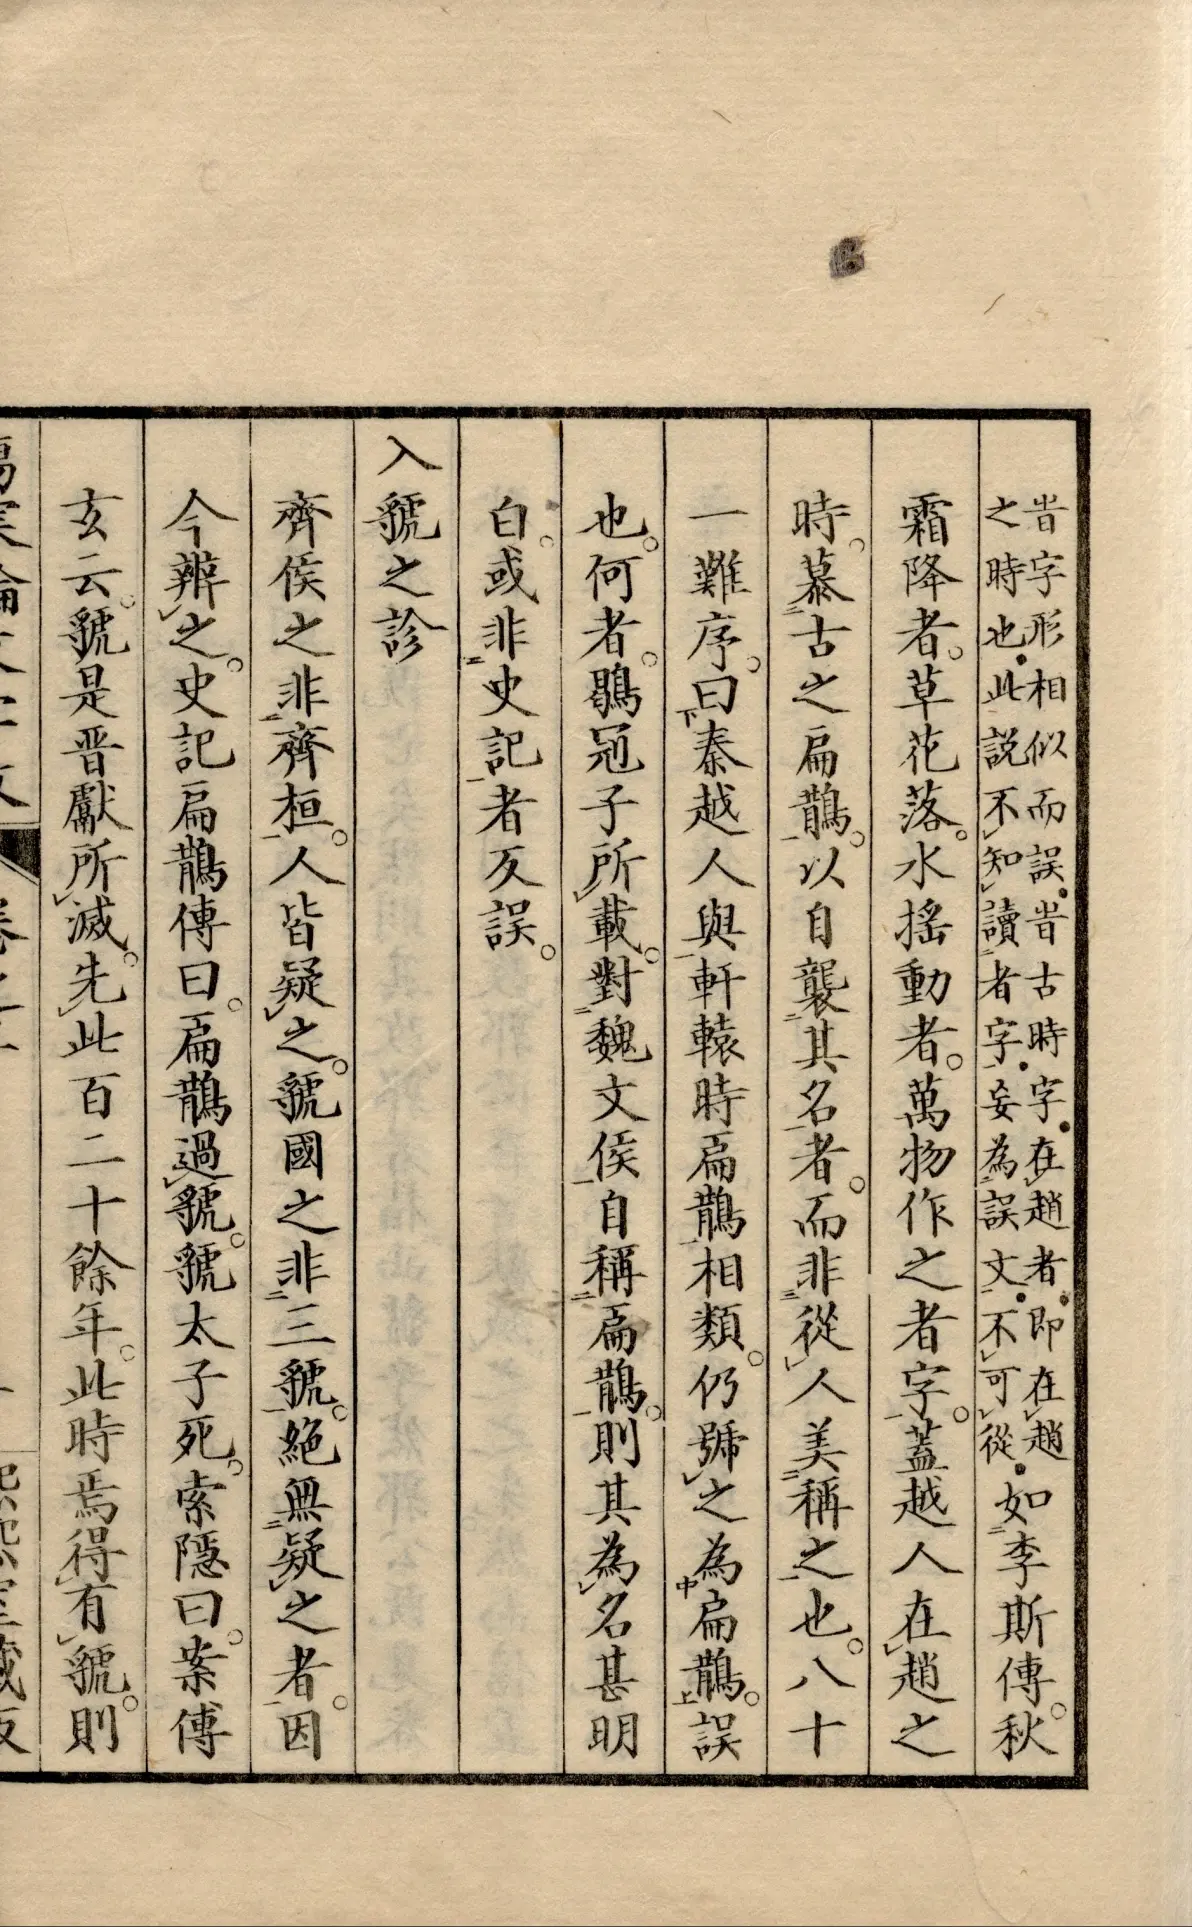 旹字形相似而誤。旹古時字。在趙者。即在趙
之時也。此説不知讀者字。妄為誤文。不可從。
如李斯傳。秋
霜降者。草花落。水揺動者。萬物作之者字。蓋越人在趙之
時。慕古之扁鵲。以自襲其名者。而非從人美稱之也。八十
一難序。曰秦越人與軒轅時扁鵲相類。仍號之為扁鵲。誤
也。何者。鶡冠子所載。對魏文侯自稱扁鵲。則其為名甚明
白。或非史記者亦誤。
入虢之診
齊侯之非齊桓。人皆疑之。虢國之非三虢。絶無疑之者。因
今辨之。史記扁鵲傳曰。扁鵲過虢。虢太子死。索隱曰。案傅
玄云。虢是晋獻所滅。先此百二十餘年。此時焉得有虢。則